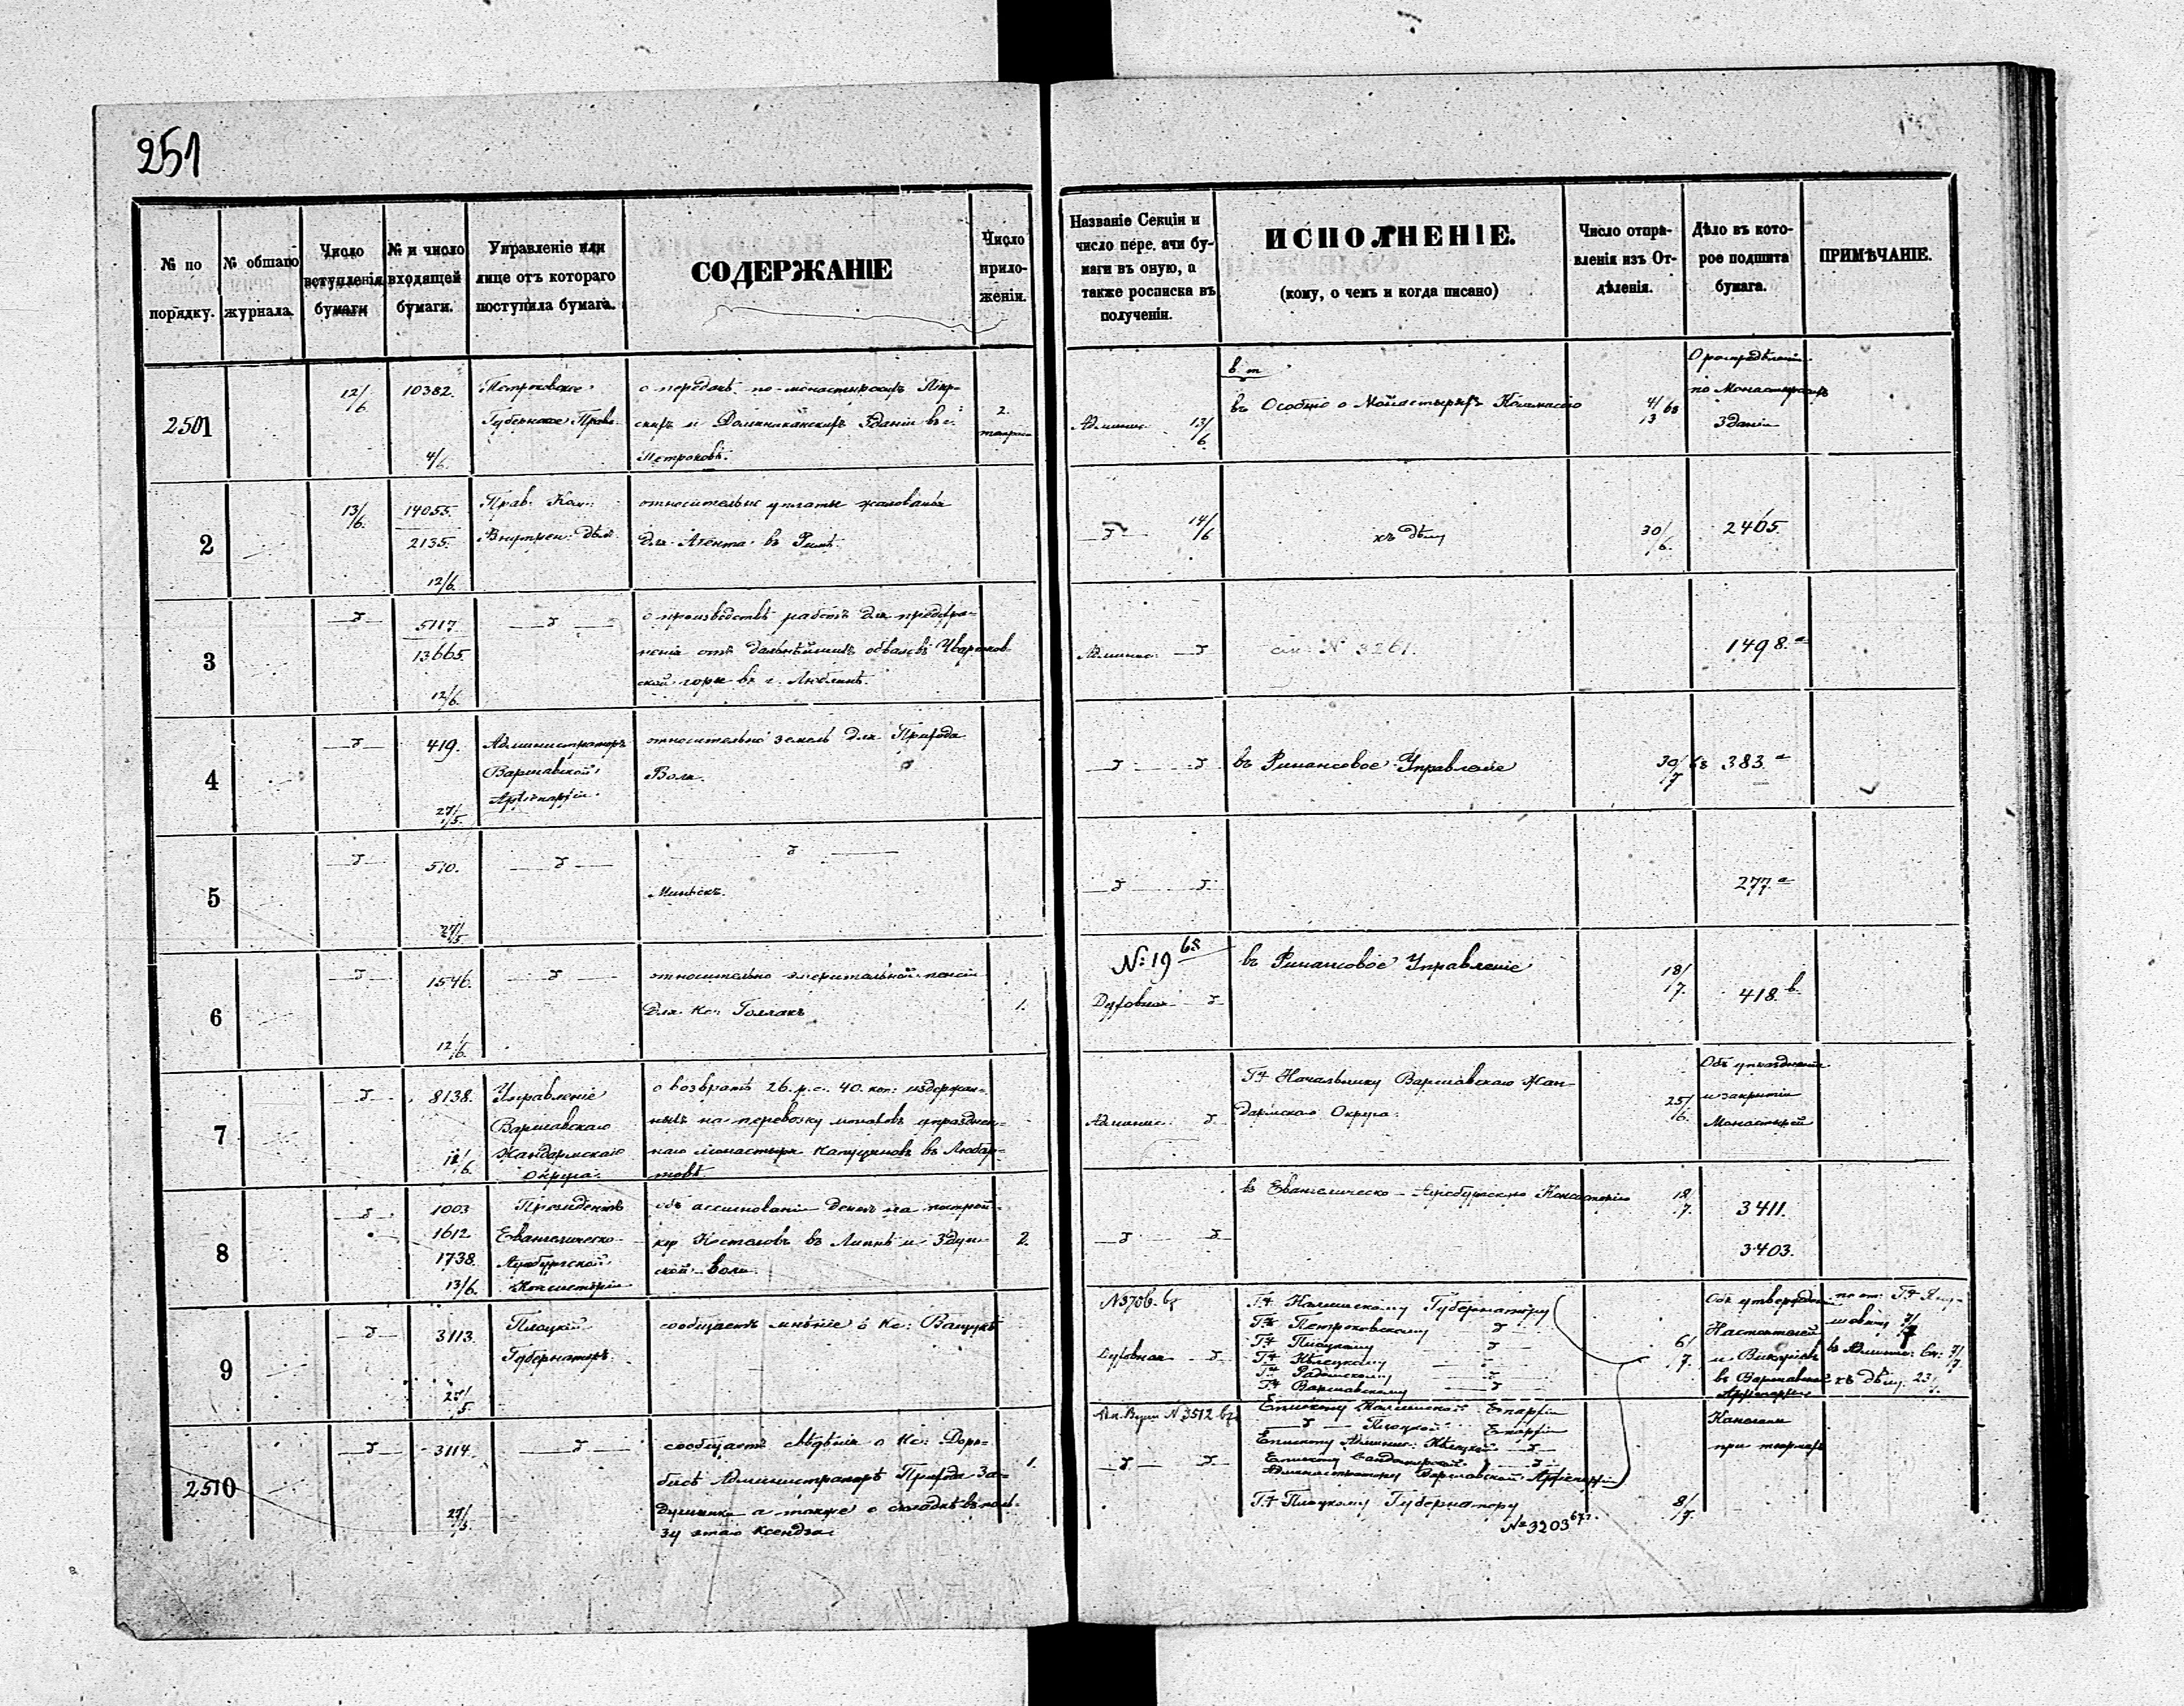 251
№ по порядку.
№ общаго журнала.
Число вступленія бумаги
№ и число входящей бумаги.
Управленіе или лице отъ котораго поступила бумага.
СОДЕРЖАНІЕ
Число приложеніи.
Названіе Секціи и число пере. ачи бумаги въ оную, а также росписка въ полученіи.
ИСПОЛНЕНІЕ.
(кому, о чемъ и когда писано)
Число отправленія изъ Отдѣленія.
Дѣло въ которое подшита бумага.
ПРИМѢЧАНІЕ.
2501
12/6
10382.
4/6.
Петроковское
Губернское Правл.
о передачѣ по-монастырскихъ
скихъ и Доминиканскихъ Зданій въ г.
Петроковѣ.
2.
Админис. 13/6
въ Особую о Монастыряхъ Коммисію
4/13 68
О распредѣленіи
по Монастырскихъ
Зданіи
2
13/6.
14055.
2135.
12/6.
Прав. Ком.
Внутрен. Дѣлъ
относительно уплаты жалованья
для Агента въ Римѣ.
14/6
къ дѣлу
30/6.
2465.
3
5117.
13665.
12/6.
о производствѣ работъ для предохра-
ненія отъ дальнѣйшихъ обваловъ
ской горы въ г. Люблинѣ.
Админис.
см. № 3261.
1498.а
4
419.
27/5.
Администраторъ
Варшавской
Архіепархіи.
относительно земель для Прихода
Воля.
въ Финансовое Управленіе
30/7 68
383.а
5
510.
27/5.
Миньскъ.
277.а
6
1546.
12/6.
относительно эмеритальной пенсіи
для Кс: Голлакъ
1.
№ 19 68
Духовная
въ Финансовое Управленіе
18/7.
418.в
7
8138.
12/6.
Управленіе
Варшавскаго
Жандармскаго
Округа.
о возвратѣ 26. р. с. 40. коп: издержан-
ныхъ на перевозку монаховъ упразднен-
наго монастыря Капуциновъ въ Любар-
товѣ
Админис.
Гну Начальнику Варшавскаго Жан-
дармскаго Округа.
25/6.
Объ упраздненіи
и закрытіи
Монастырей
8
1003
1612
1738.
13/6.
Президентъ
Евангелическо-
Аугсбургской
Консисторіи
объ ассигнованіи денегъ на построй-
ку Костеловъ въ Липнѣ и Здун-
ской-Воли.
2.
въ Евангелическо-Аугсбургскую Консисторію
18/7.
3411.
3403.
9
3113.
27/5
Плоцкій
Губернаторъ.
сообщаетъ мнѣніе о Кс:
№ 3706. 67
Духовная
Гну Калишскому Губернатору
Гну Петроковскому
Гну Плоцкому
Гну Кѣлецкому
Гну Радомскому
Гну Варшавскому
6/7.
Объ утвержденіи
Настоятелей
и Викаріевъ
въ Варшавской
Архіепархіи
къ дѣлу 23/
2510
3114.
27/5
сообщаетъ свѣдѣнія о Кс:
Администраторѣ Прихода За-
душники а также о складкѣ въ поль-
зу этаго Ксендза
1.
№ 3512
Епископу Калишской Епархіи
Плоцкой Епархіи
Епископу Админис: Кѣлецкой
Епископу Сандомирской
Администратору Варшавской Архіепархіи
Гну Плоцкому Губернатору
№ 3203 67 г.
8/7.
Капеланы
при тюрмахъ